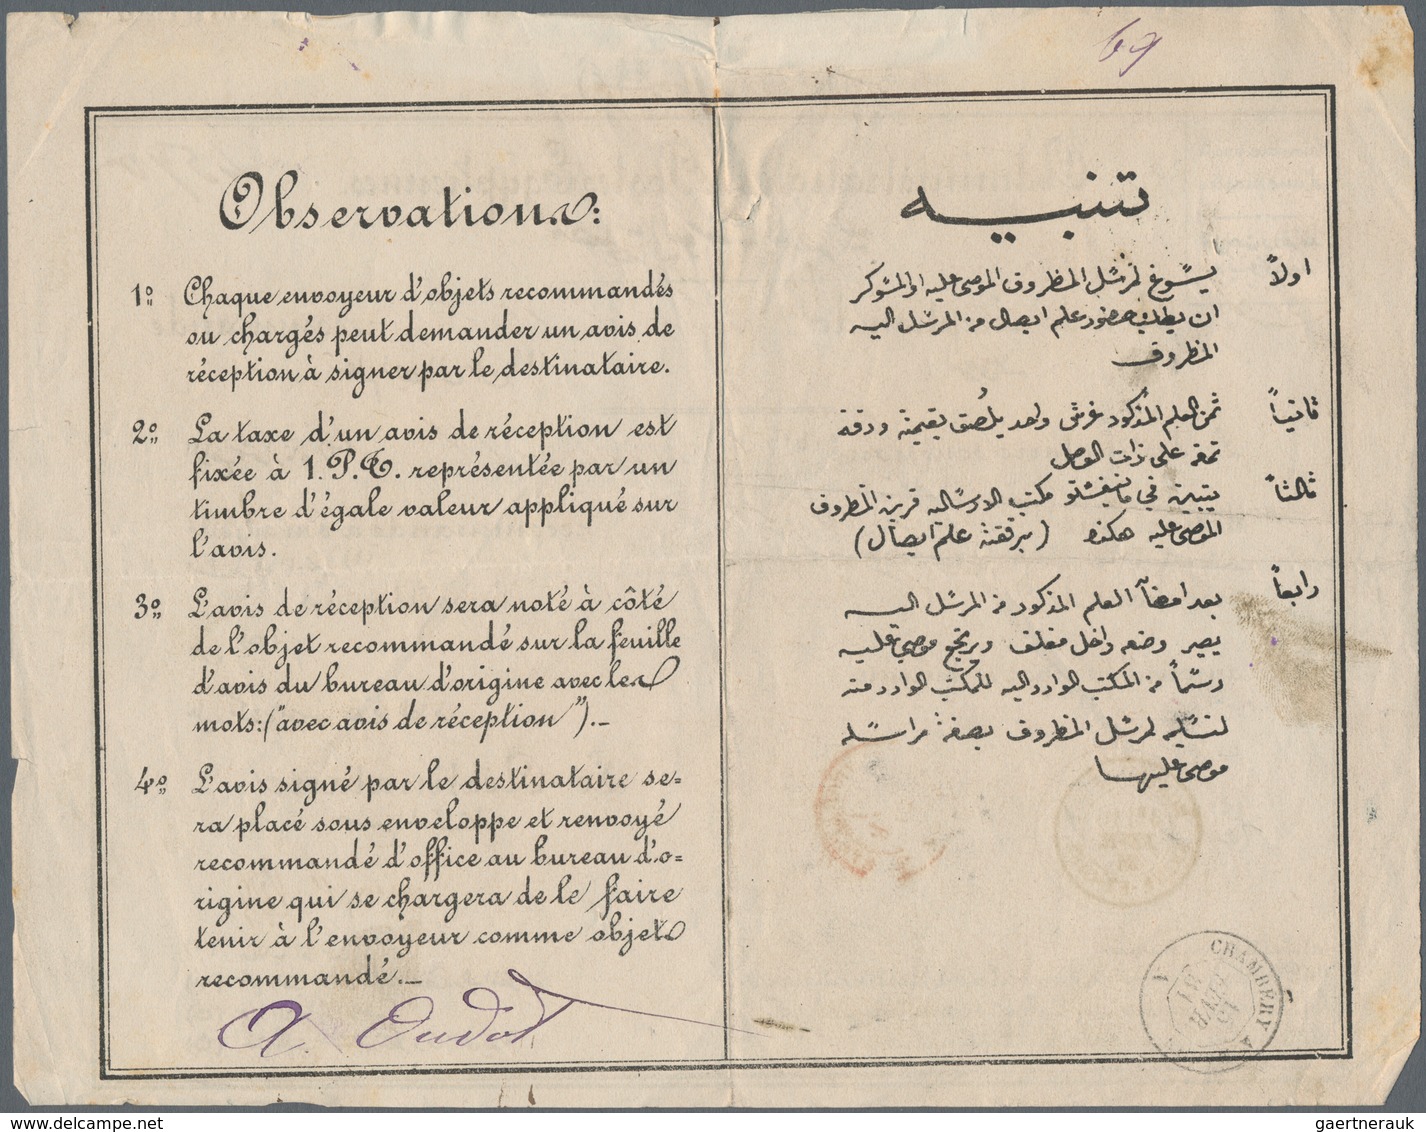 69
Observations:
1º Chaque envoyeur d'objets recommandés
ou chargés peut demander un avis de
réception à signer par le destinataire.
2º La taxe d'un avis de réception est
fixée à 1. P.E. représentée par un
timbre d'égale valeur appliqué sur
l'avis.
3º L'avis de réception sera noté à côté
de l'objet recommandé sur la feuille
d'avis du bureau d'origine avec les
mots: ("avec avis de réception").–
4º L'avis signé par le destinataire se=
ra placé sous enveloppe et renvoyé
recommandé d'office au bureau d'o=
rigine qui se chargera de le faire
tenir à l'envoyeur comme objet
recommandé.–
A. Oudot
تنبيه
اولاً يسوغ لمرسل المظروف الموصى عليه او المسوكر
ان يطلب حضور علم ايصال من المرسل اليه
المظروف
ثانياً ثمن العلم المذكور غرش واحد يلصق بقيمته ورقة
تمغه على ذات الوصل
ثالثاً يتبين في مكتب الارساليه قرين المظروف
الموصى عليه هكذا (برفقته علم ايصال)
رابعاً بعد امضآ العلم المذكور من المرسل اليه
يصير وضعه داخل مغلق ويرتجع موصى عليه
رسماً من المكتب الوارد اليه للمكتب الوارد منه
لتسليمه لمرسل المظروف بصفة مراسله
موصى عليها
CHAMBERY
gaertnerauk - delcampe.net